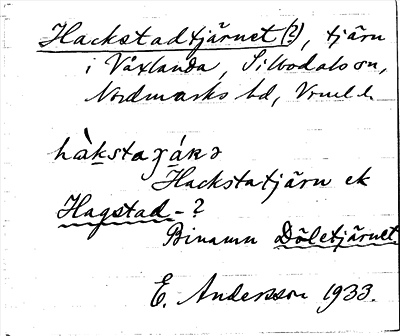 Hackstadtjärnet (?), tjärn
i Våxlanda, Silbodals sn,
Nordmarks hd, Vrml l.
hàkstaɟáṇə
Hackstatjärn ek
Hagstad-?
Binamn Döletjärnet.
E. Andersson 1933.